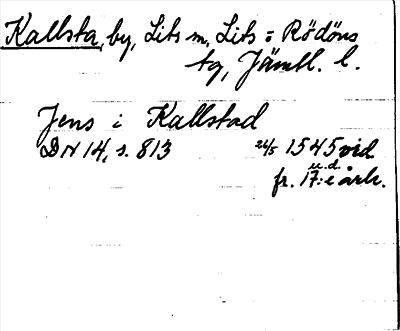 Kallsta, by, Lits sn, Lits o Rödöns
tg, Jämtl. l.
Jens i Kallstad
DN 14, s. 813 26/5 1545 vid.
u.d.
fr. 17:e årh.